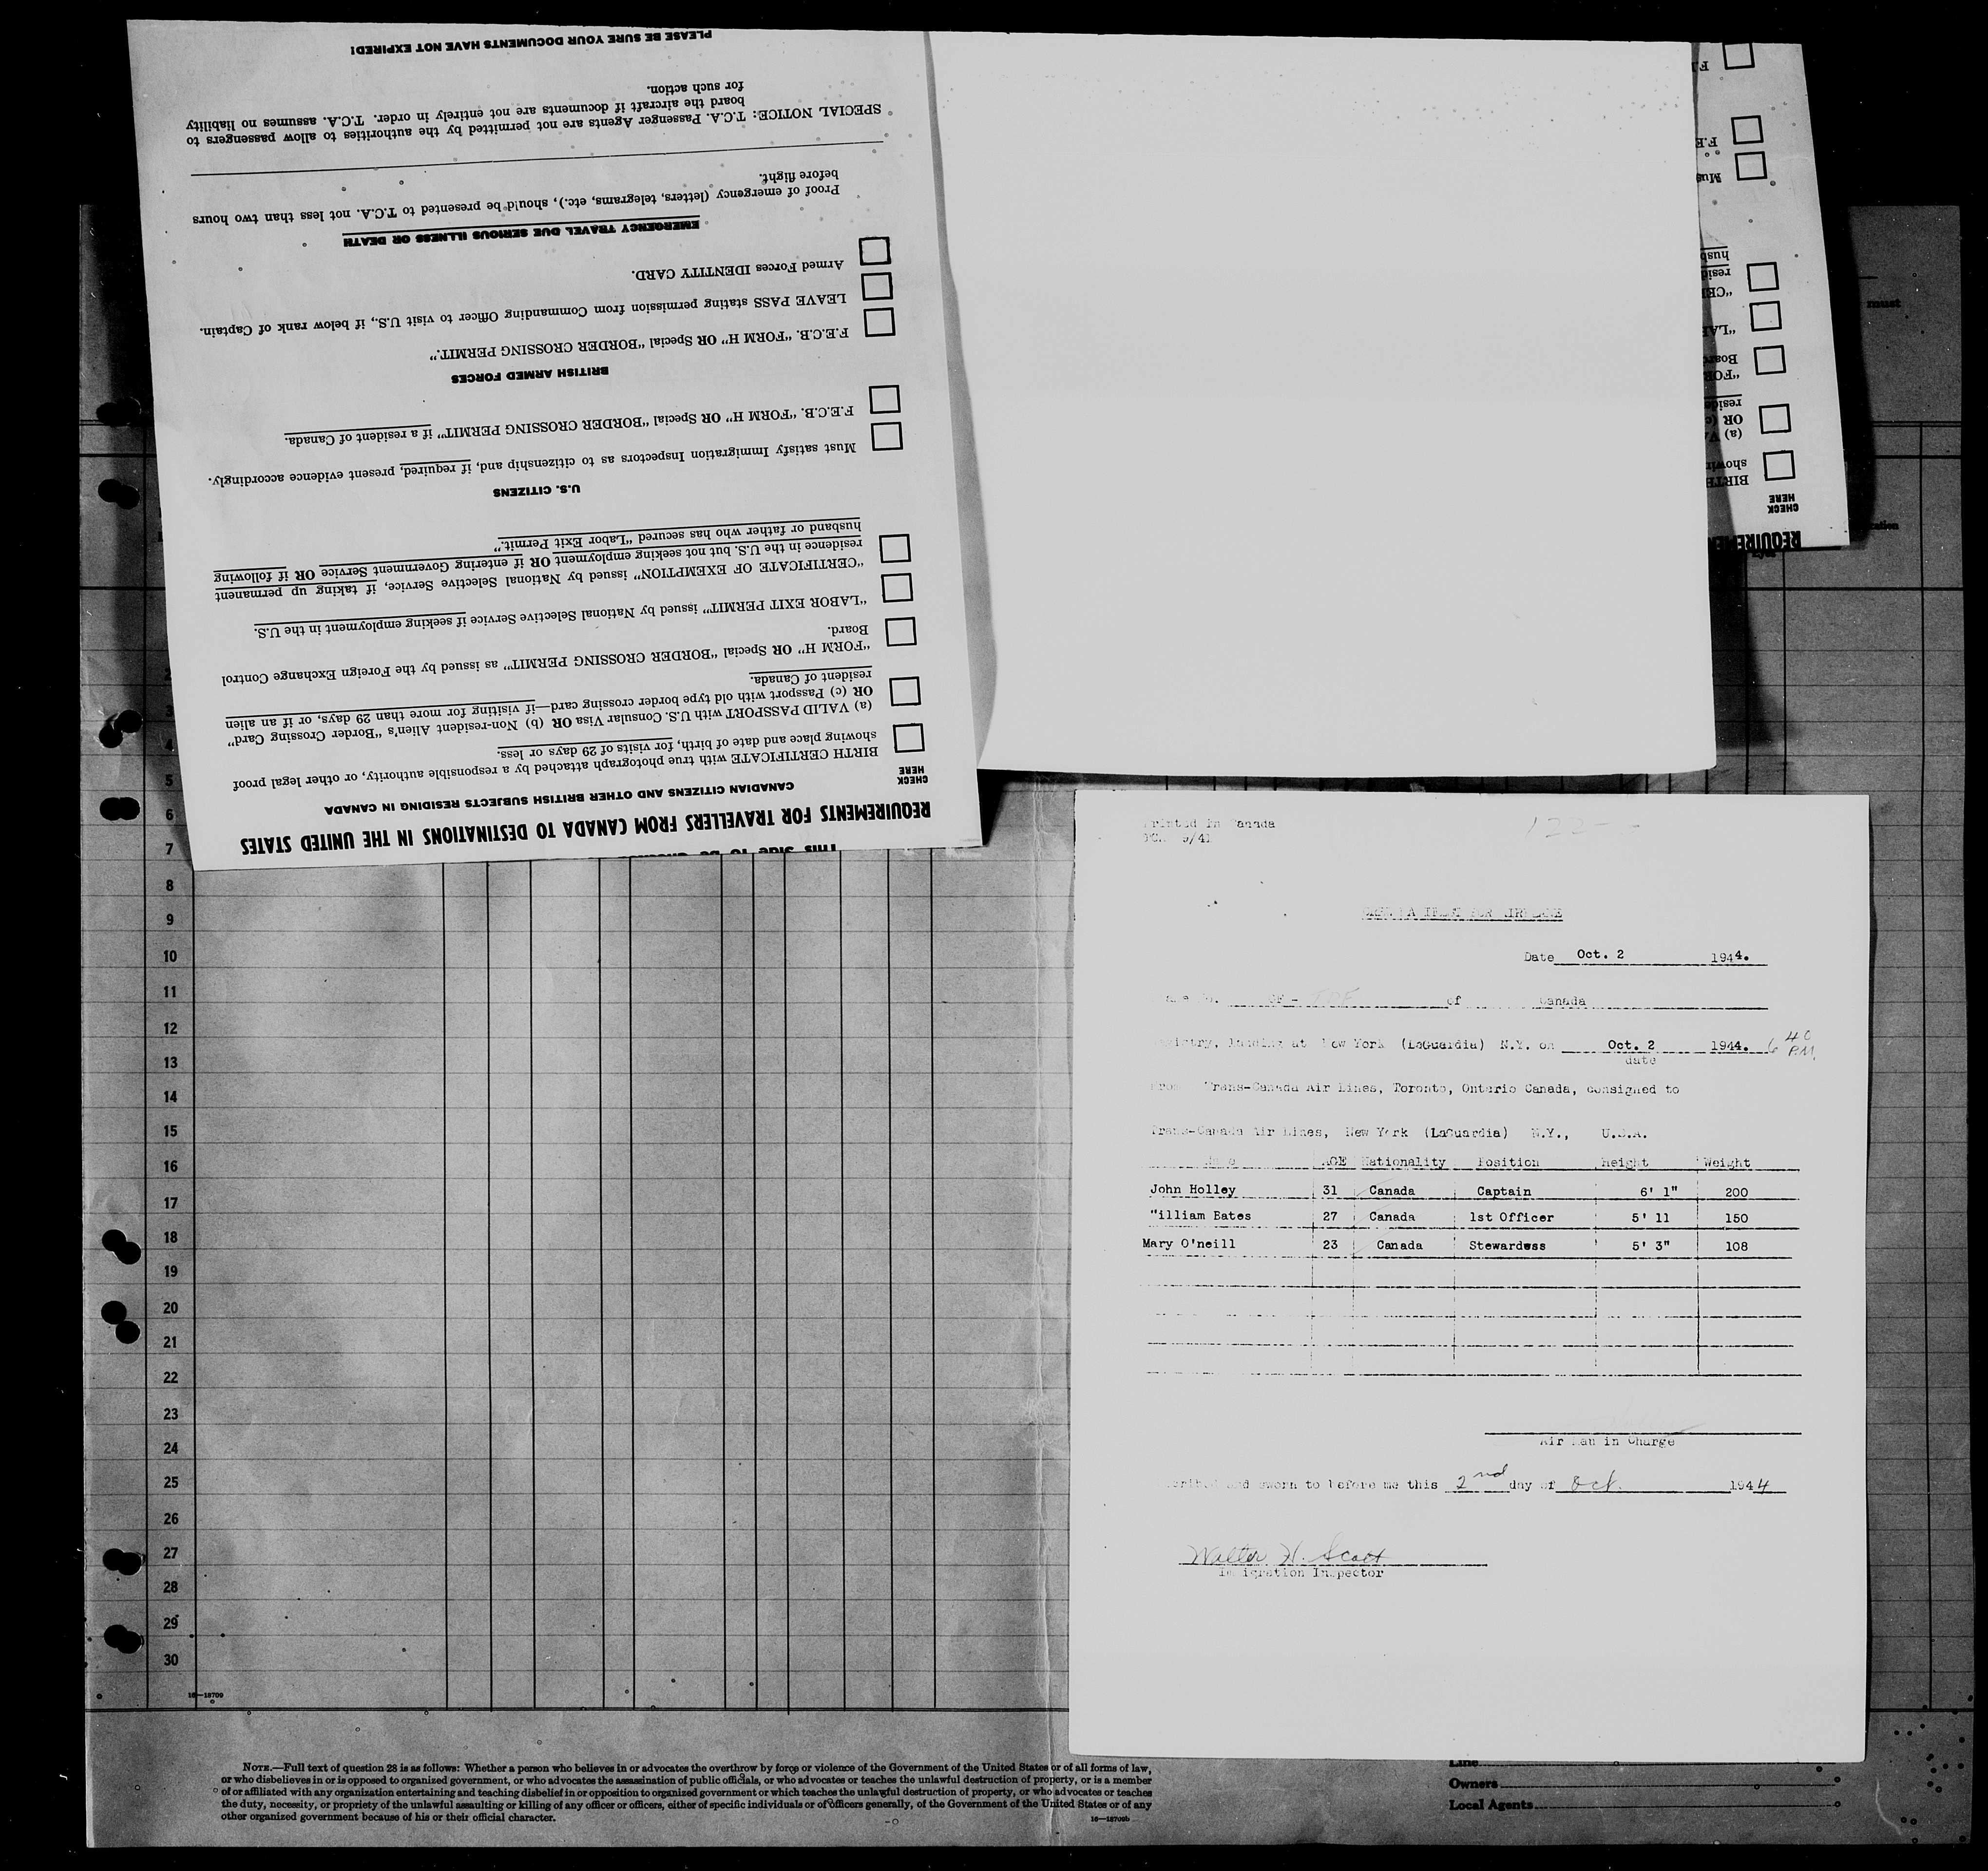 This Side To Be
REQUIREMENTS FOR TRAVELLERS FROM CANADA TO DESTINATIONS IN THE UNITED STATES
CANADIAN CITIZENS AND OTHER BRITISH SUBJECTS RESIDING IN CANADA
CHECK
HERE
BIRTH CERTIFICATE with true photograph attached by a responsible authority, or other legal proof
showing place and date of birth, for visits of 29 days or less.
(a) VALID PASSPORT with U.S. Consular Visa OR (b) Non-resident Alien's "Border Crossing Card"
OR (c) Passport with old type border crossing card—if visiting for more than 29 days, or if an alien
resident of Canada.
"FORM H" OR Special "BORDER CROSSING PERMIT" as issued by the Foreign Exchange Control
Board.
"LABOR EXIT PERMIT" issued by National Selective Service if seeking employment in the U.S.
"CERTIFICATE OF EXEMPTION" issued by National Selective Service, if taking up permanent
residence in the U.S. but not seeking employment OR if entering Government Service OR if following
husband or father who has secured "Labor Exit Permit."
U.S. CITIZENS
Must satisfy Immigration Inspectors as to citizenship and, if required, present evidence accordingly.
F.E.C.B. "FORM H" OR Special "BORDER CROSSING PERMIT" if a resident of Canada.
BRITISH ARMED FORCES
F.E.C.B. "FORM H" OR Special "BORDER CROSSING PERMIT."
LEAVE PASS stating permission from Commanding Officer to visit U.S., if below rank of Captain.
Armed Forces IDENTITY CARD.
EMERGENCY TRAVEL DUE SERIOUS ILLNESS OR DEATH
Proof of emergency (letters, telegrams, etc.), should be presented to T.C.A. not less than two hours
before flight.
SPECIAL NOTICE: T.C.A. Passenger Agents are not permitted by the authorities to allow passengers to
board the aircraft if documents are not entirely in order. T.C.A. assumes no liability
for such action.
PLEASE BE SURE YOUR DOCUMENTS HAVE NOT EXPIRED!
REQUIREMEN
CHECK
HERE
BIRTH
showin
(a) VA
OR (c
reside
"FOR
Board
"LAB
"CER
resid
husb
Mus
F.E
F.
must
5
6
7
8
9
10
11
12
13
14
15
16
17
18
19
20
21
22
23
24
25
26
27
28
29
30
16—18709
Printed in Canada
9/41
122--
Date Oct. 2 1944.
CF- of Canada
landing at New York (LaGuardia) N.Y. on Oct. 2 1944. 6 40 P.M.
date
From Trans-Canada Air Lines, Toronto, Ontario Canada, consigned to
Trans-Canada Air Lines, New York (LaGuardia) N.Y., U.S.A.
Name AGE Nationality Position Height Weight
John Holley 31 Canada Captain 6' 1" 200
"illiam Bates 27 Canada 1st Officer 5' 11 150
Mary O'neill 23 Canada Stewardess 5' 3" 108
Air Man in Charge
and sworn to before me this 2nd day of Oct. 1944
Walter H. Scott
Immigration Inspector
NOTE.—Full text of question 28 is as follows: Whether a person who believes in or advocates the overthrow by force or violence of the Government of the United States or of all forms of law,
or who disbelieves in or is opposed to organized government, or who advocates the assassination of public officials, or who advocates or teaches the unlawful destruction of property, or is a member
of or affiliated with any organization entertaining and teaching disbelief in or opposition to organized government or which teaches the unlawful destruction of property, or who advocates or teaches
the duty, necessity, or propriety of the unlawful assaulting or killing of any officer or officers, either of specific individuals or of officers generally, of the Government of the United States or of any
other organized government because of his or their official character.
16—18709b
Line
Owners
Local Agents